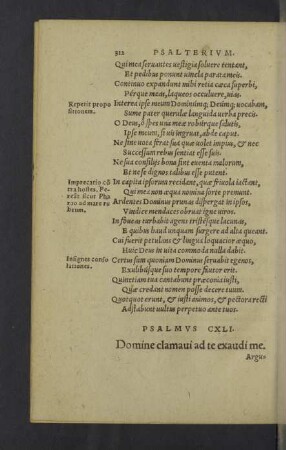 312 PSALTERIVM.
Qui mea seruantes uestigia soluere tentant,
Et pedibus ponunt uincla parata meis.
Continuo expandunt mihi retia cæca superbi,
Pérque meas, laqueos occuluere, uias.
Repetit propositionem.
Interea ipse meum Dominúmq; Deúmq; uocabam,
Sume pater querulæ languida uerba precis.
O Deus, ô spes una meæ robúrque salutis,
Ipse meum, si uis ingruat, abde caput.
Ne sine uota ferat sua quæ uolet impius, & nec
Successum rebus sentiat esse suis.
Ne sua consilijs bona sint euenta malorum,
Et ne se dignos talibus esse putent.
Imprecatio contra hostes. Pereāt sicut Pharao ad mare rubrum.
In capita ipsorum recidant, quæ friuola iactant,
Qui mea non æqua nomina sorte premunt.
Ardentes Dominus prunas dispergat in ipsos,
Vindice mendaces obruat igne uiros.
In foueas turbabit agens tristésque lacunas,
E quibus haud unquam surgere ad alta queant.
Cui fuerit petulans & lingua loquacior æquo,
Huic Deus in uita commoda nulla dabit.
Insignes consolationes.
Certus sum quoniam Dominus seruabit egenos,
Exulibúsque suo tempore fautor erit.
Quinetiam tua cantabunt præconia iusti,
Quæ credant nomen posse decere tuum.
Quotquot erunt, & iusti animos, & pectora recti
Adstabunt uultus perpetuo ante tuos.
PSALMVS CXLI.
Domine clamaui ad te exaudi me.
Argu=